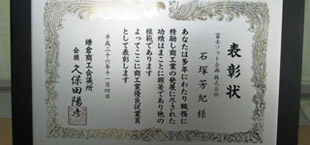 表彰状
富士ソフト企画株式会社
石塚芳紀様
あなたは多年にわたり職務に
精励し商工業の発展に尽された
功績はまことに顕著であり他の
模範であります
よってここに商工業優良従業員
として表彰します
平成二十六年十一月四日
鎌倉商工会議所
会頭 久保田陽彦